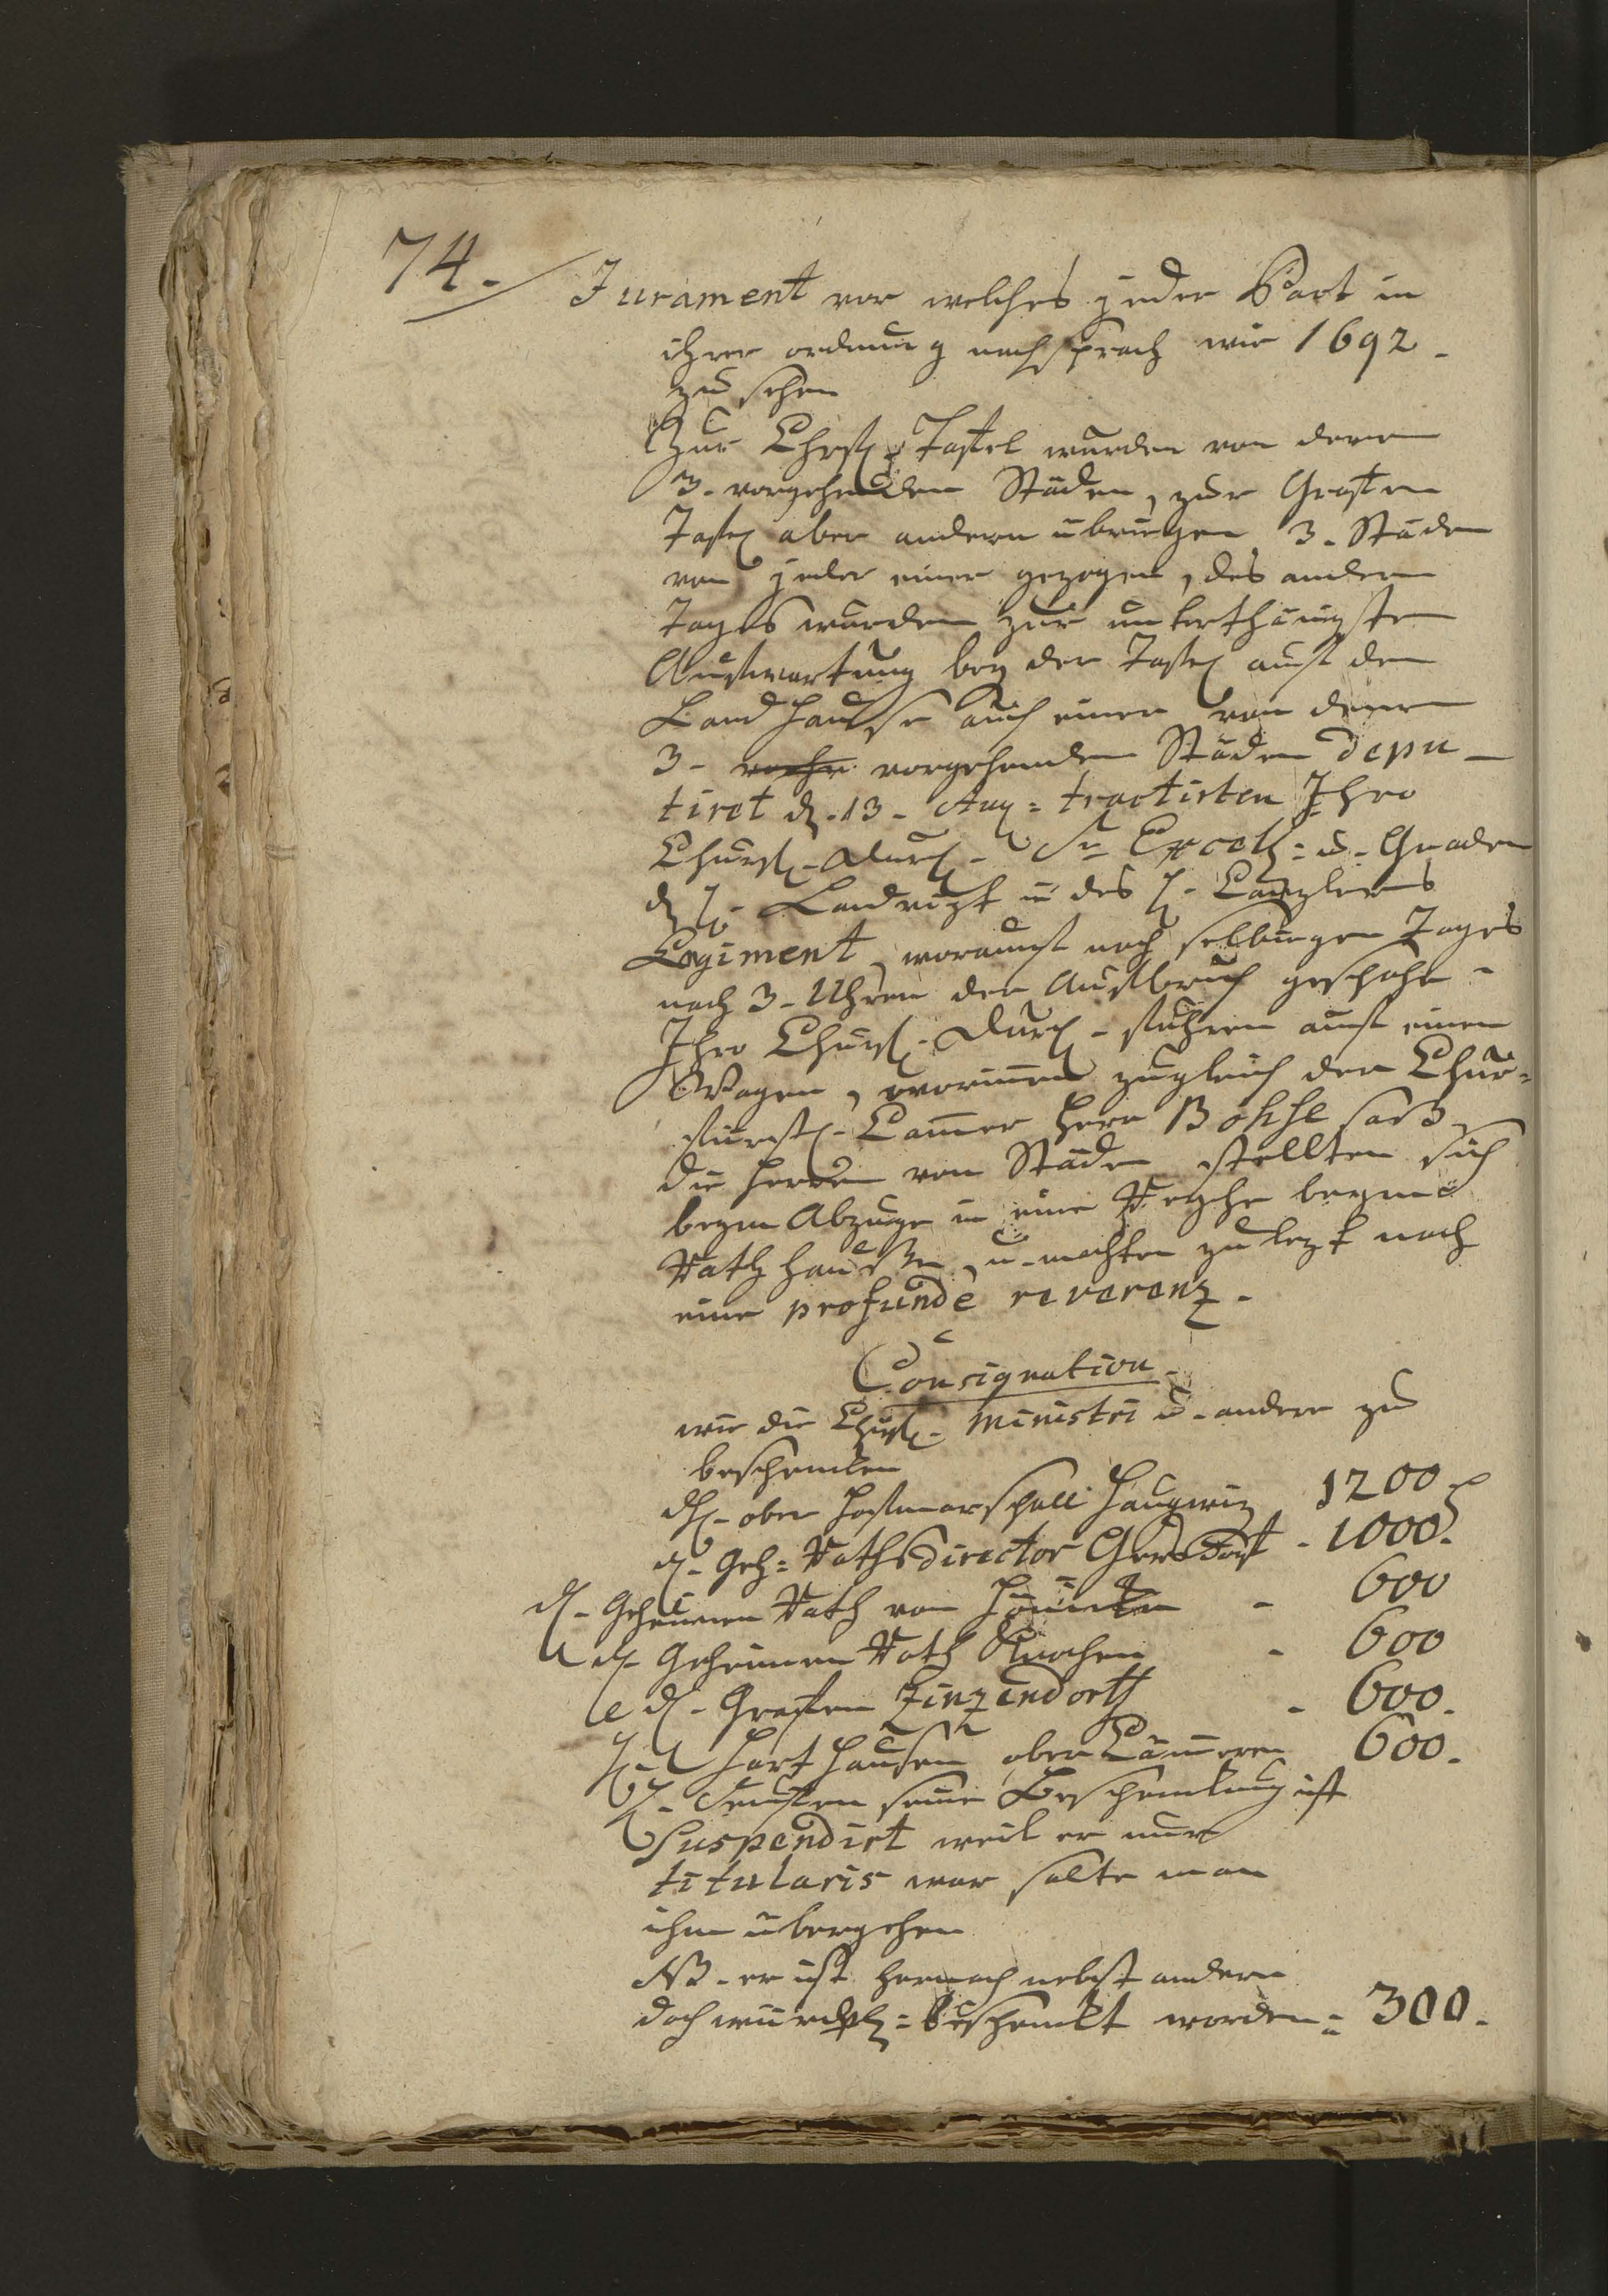 74.
Jurament vor welches jeder Part in
ihrer ordnung nachsprach wie 1692.
zu sehen
Zur Churf. Taffel wurden von denen
3. vorgehenden Städen, zur Graffen
Taffel aber andern übriegen 3. Städen
von jeder einer gezogen, des andern
Tages wurden zur unterthänigsten
Auffwartung bey der Taffel auff den
Land Hausse auch einer von denen
3. vorgehenden Städen depu-
tiret d. 13. Aug: tractirten Ihro
Churfl. Durchl. Sr. Excell: u. Gnaden
d H. Landvogt u des H. Canzlers
Regiment, worauff noch selbiegen Tages
nach 3. Uhren der Auffbruch geschahe.
Ihro Churfl. Durchl. fuhren auff einen
Wagen, worinnen zugleich der Chur-
fürstl. Cammer Herr Bohse saß
die Herren von Städen stellten sich
beym Abzuge in eine Reyhe beym
Rathhausse, u. machten zu lezt noch
eine profunde reverenz.
Consignation
wie die Churfl. Ministri u. andere zu
beschencken
dH. ober Hoffmarschall Haugwiz 1200
dH. Geh: Raths Director Gersdorf - 1000.
dH. Geheimen Rath von - 600
dH. Geheimen Rath Knochen - 600
dH. Graffen Zinzendorff - 600.
H. Hart Hausen ober Cämmerer 600.
H. seine Beschenckung ist
Suspendirt weil er nur
titularis war solte man
ihn übergehen
NB. er ist hernach nebst andern
doch würckl: beschenckt worden = 300.